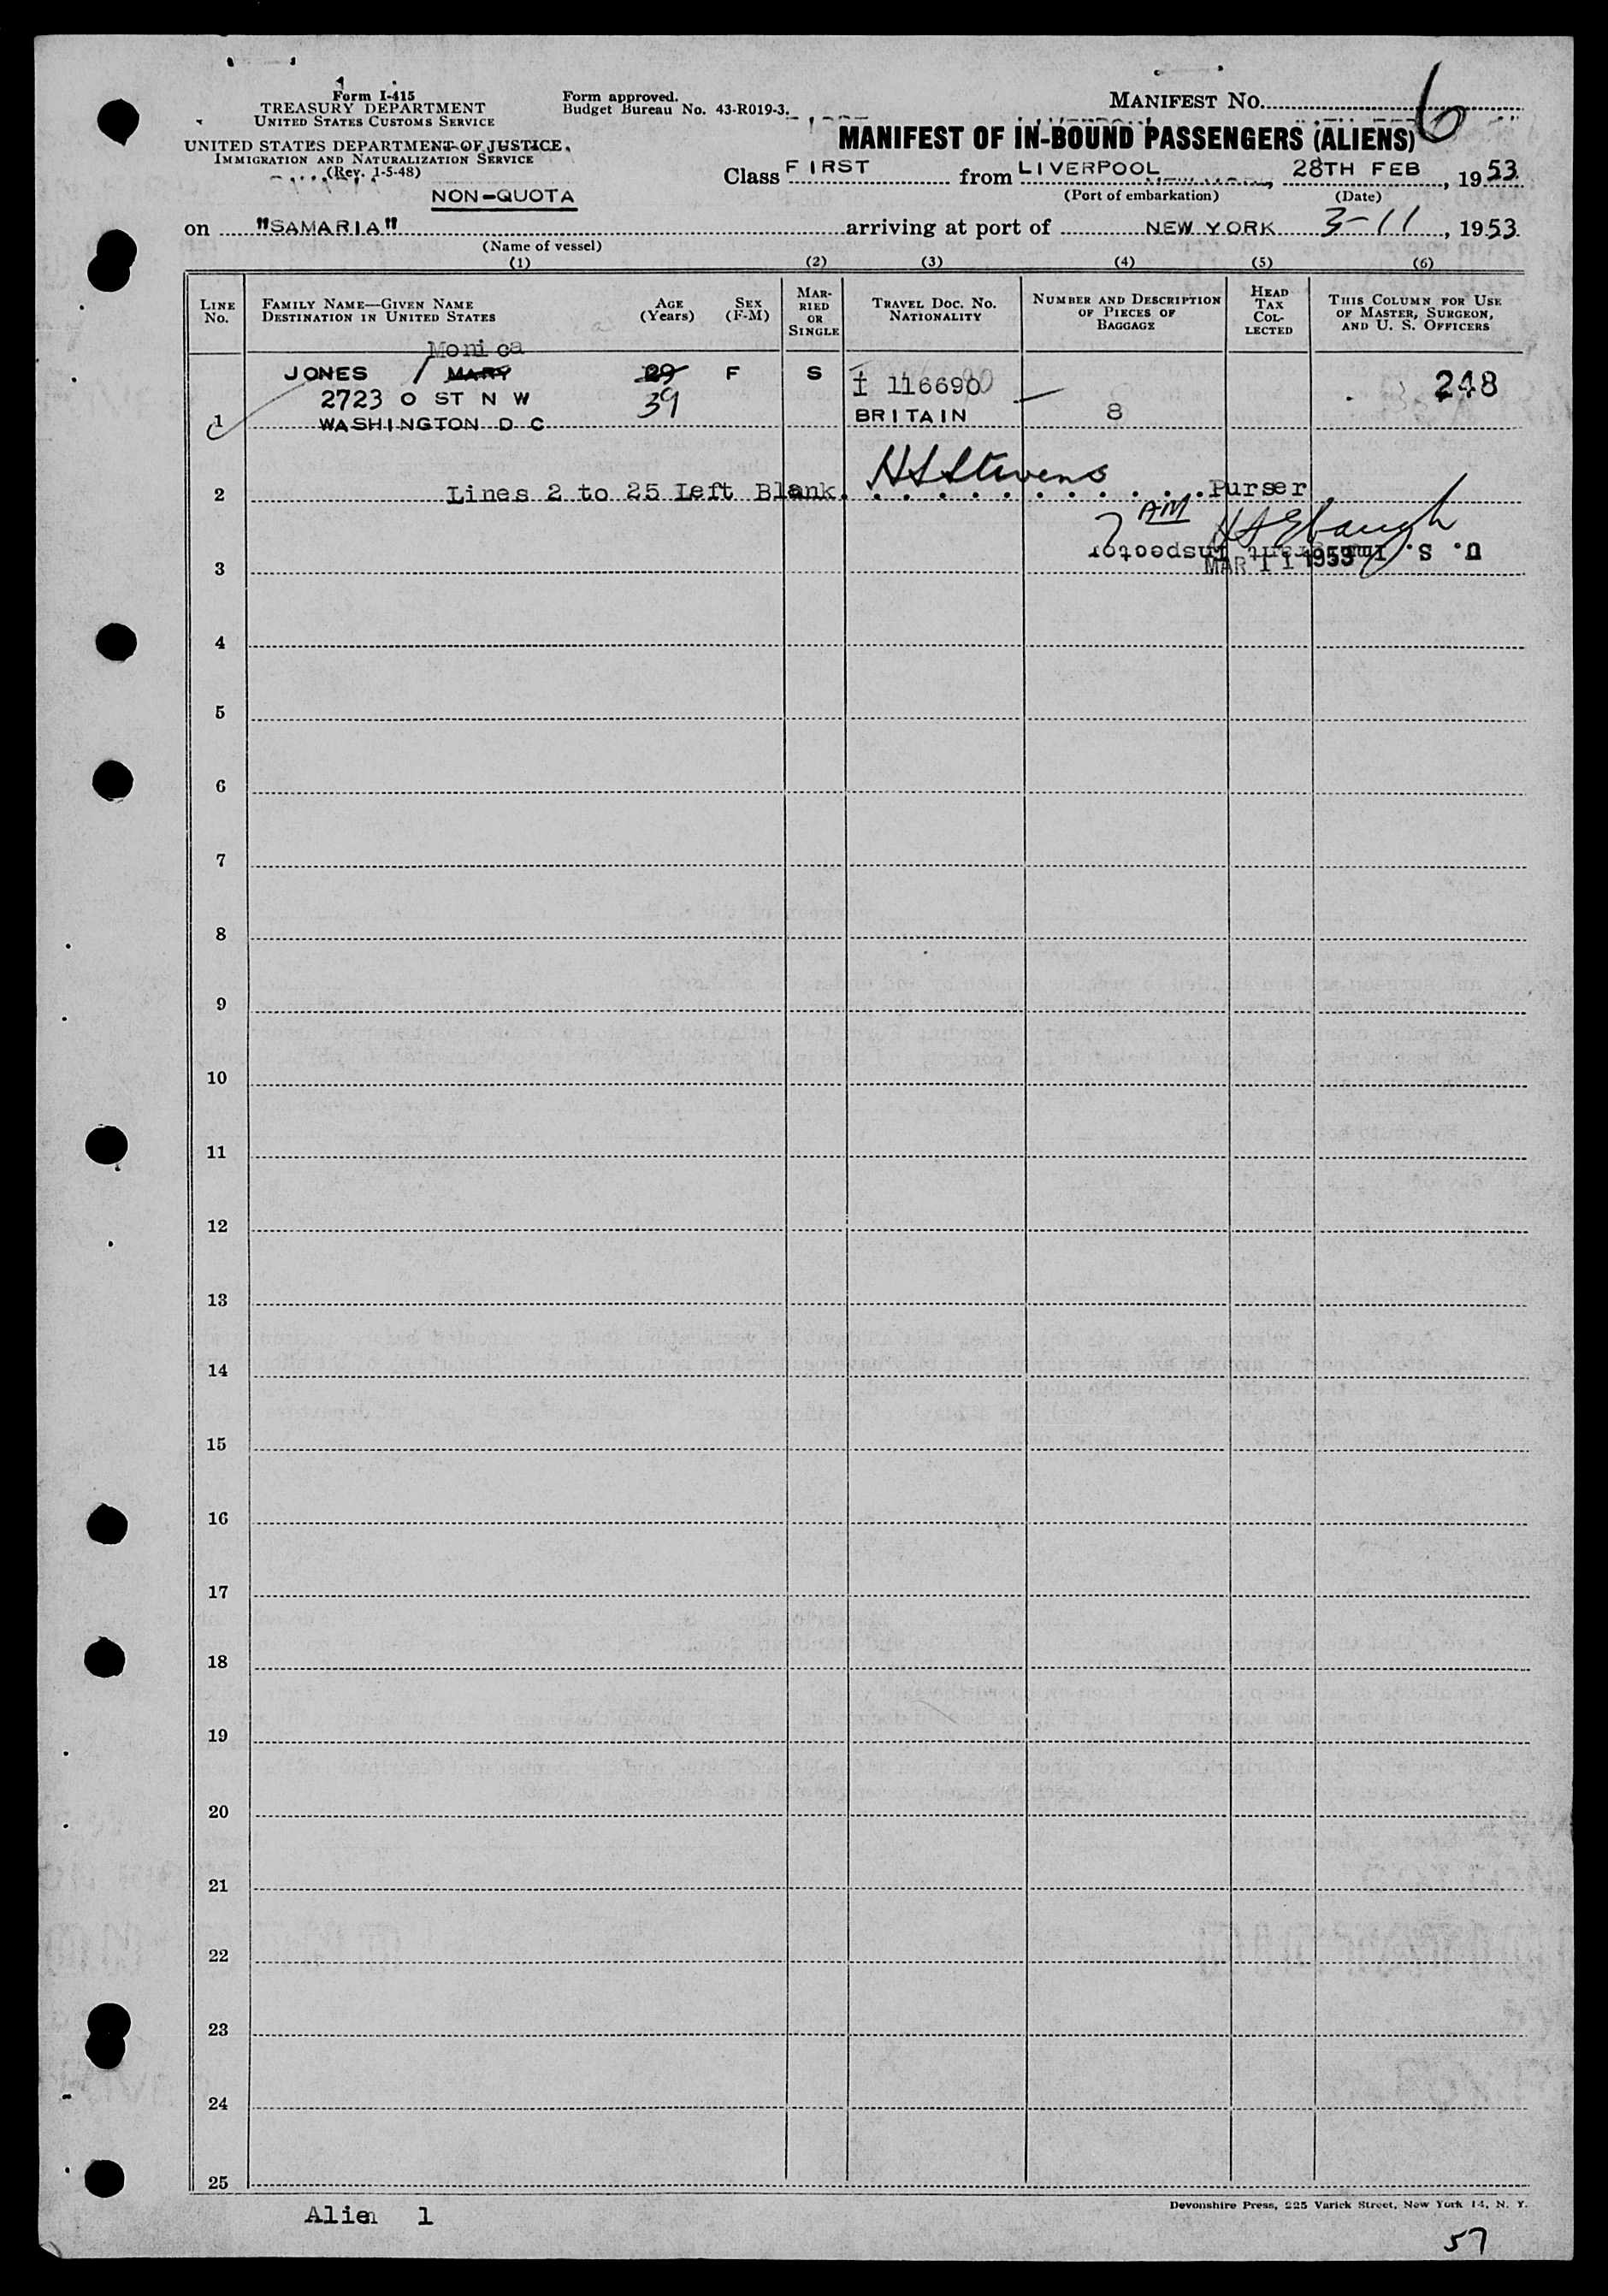 Form I-415
TREASURY DEPARTMENT
UNITED STATES CUSTOMS SERVICE
UNITED STATES DEPARTMENT OF JUSTICE
IMMIGRATION AND NATURALIZATION SERVICE
(Rev. 1-5-48)
Form approved.
Budget Bureau No. 43-R019-3.
MANIFEST No. 6
MANIFEST OF IN-BOUND PASSENGERS (ALIENS)
Class FIRST from LIVERPOOL, 28TH FEB, 1953
(Port of embarkation) (Date)
NON-QUOTA
on "SAMARIA" arriving at port of NEW YORK 3-11, 1953
(Name of vessel)
(1) (2) (3) (4) (5) (6)
LINE No. FAMILY NAME—GIVEN NAME DESTINATION IN UNITED STATES AGE (Years) SEX (F-M) MARRIED OR SINGLE TRAVEL DOC. No. NATIONALITY NUMBER AND DESCRIPTION OF PIECES OF BAGGAGE HEAD TAX COLLECTED THIS COLUMN FOR USE OF MASTER, SURGEON, AND U. S. OFFICERS
Monica
JONES / MARY 29 F S I 116690 248
2723 O ST N W 39
1 WASHINGTON D C BRITAIN 8
2 Lines 2 to 25 Left Blank. H S Stevens Purser
7 AM
U. S. Immigrant Inspector
3 MAR 11 1953
4
5
6
7
8
9
10
11
12
13
14
15
16
17
18
19
20
21
22
23
24
25
Alien 1
Devonshire Press, 225 Varick Street, New York 14, N. Y.
57